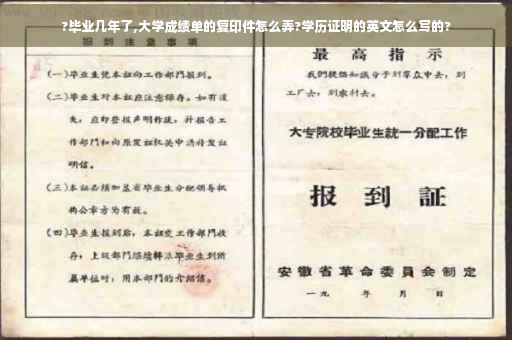 ?毕业几年了,大学成绩单的复印件怎么弄?学历证明的英文怎么写的?
报到注意事项
(一)毕业生凭本证向工作部门报到。
(二)毕业生对本证应注意保存。如有遗
失,应即登报声明作废,并报告工
作部门和向原发证机关申请补发证
明信。
(三)本证必须加盖省毕业生分配领导机
构公章方为有效。
(四)毕业生报到后,本证交工作部门收
存;上级部门继续转派毕业生到所
属单位时,用本部门的介绍信。
最高指示
我们提倡知识分子到群众中去,到
工厂去,到农村去。
大专院校毕业生统一分配工作
报到証
安徽省革命委員会制定
一九 年 月 日